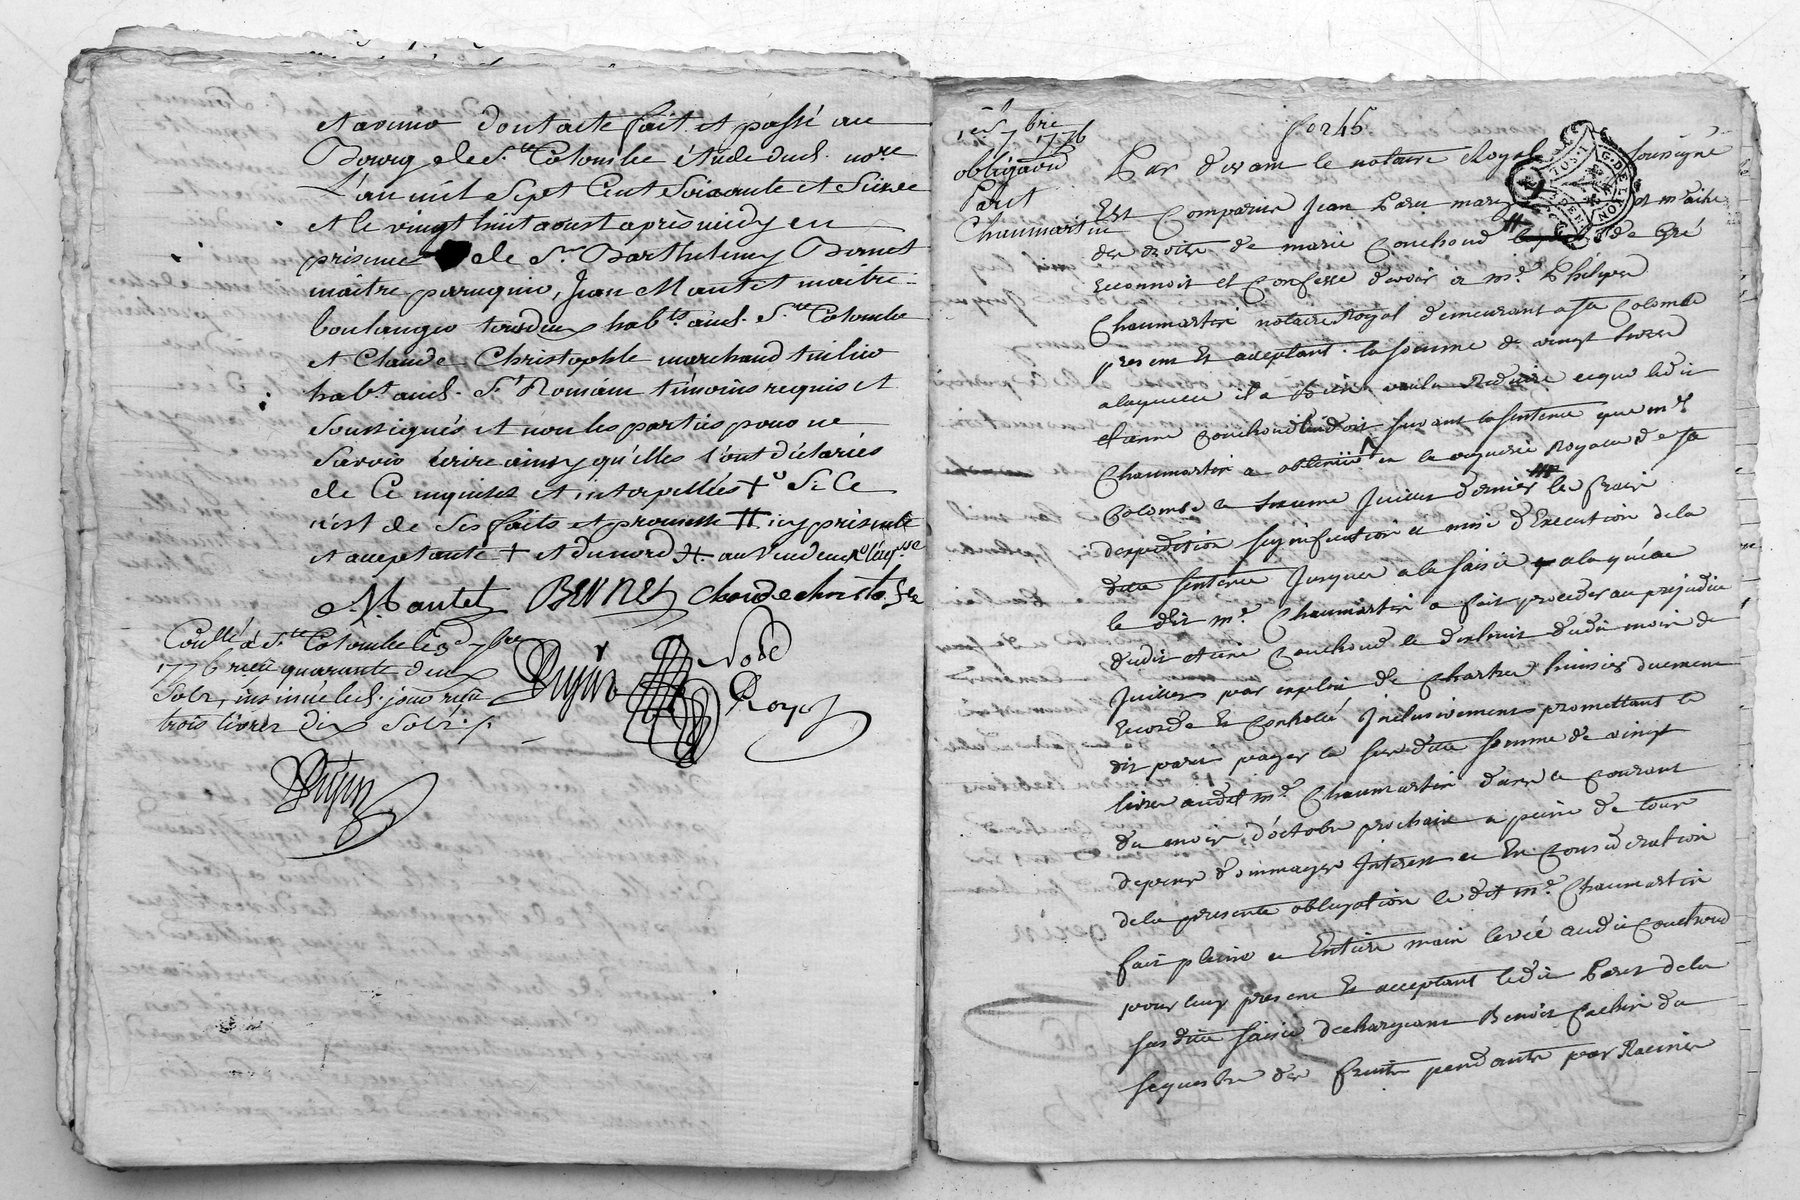 et avenir dont acte fait et passé au
Bourg de Ste Colombe étude dud. nore
L'an mil Sept Cent Soixante et Seize
et le vingt huit aoust après midy en
présence de Sr Barthelemy Bernet
maitre peruquier, Jean Mantet maitre
boulanger tous deux habts aud. Ste Colombe
et Claude Christophle marchand
habt aud. St Romain témoins requis et
Soussignés et non les parties pour ne
Savoir écrire ainsy qu'elles l'ont déclarées
de Ce enquises et interpellées + Si Ce
n'est de Ses faits et promesse # icy présente
et acceptante + et du nord
Mantet BERNET Claude christo fle
Conllé à Ste Colombe le 3e 7bre
1776 reçu quarante deux
Sols, insinué led. jour reçu
trois livres dix Sols
Dujin Nore Royal
Dujin
1er 7bre
1776
obligaõn
Paret
Chaumartin
fo 245
G. D. LYON
Par devant le notaire Royal soussigné
Est Comparu Jean Paret mary et maitre
des droits de marie Couchoud de Gré
reconnoit et Confesse devoir à me Philipe
Chaumartin notaire Royal demeurant a Ste Colombe
present et acceptant la somme de vingt livres
a laquelle il a Bien voulu Reduire ce que ledit
etienne Couchoud lui doit suivant la sentence que me
Chaumartin a obtenüe en la Royale de Ste
Colombe le juillet dernier les frais
d'expedition signification et mise d'Execution de la
ditte sentence jusques a la saisie a laquelle
le dit me Chaumartin a fait proceder au prejudice
dudit etienne Couchoud le dudit mois de
juillet par exploit de Chartier huissier duement
Recordé et Controllé inclusivement promettant le
dit paret payer la susditte somme de vingt
livres audit me Chaumartin dans le Courant
du mois d'octobre prochain a peine de tous
depens dommages Interets et En Consideration
de la presente obligation le dit me Chaumartin
fait pleine et Entiere main levée audit Couchoud
pour luy present et acceptant ledit Paret de la
susditte saisie dechargeant Benoit Cachin du
sequestre des fruits pendants par Racines